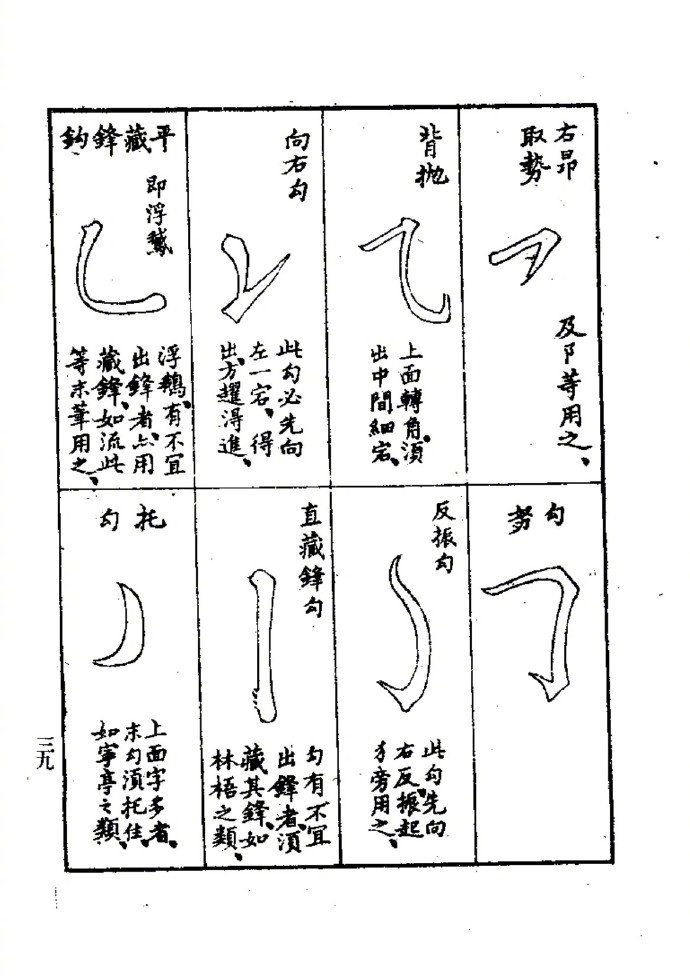 右昂
取勢
及阝等用之、
背抛
上面轉角、須
出中間細宕、
向右勾
此勾必先向
左一宕、得
出方趯得進、
平藏鋒鈎
即浮鵞
浮鵝、有不宜
出鋒者、点用
藏鋒、如流此
等末筆用之、
勾努
反振勾
此勾、先向
右反振起
犭旁用之、
直藏鋒勾
勾有不宜
出鋒者、須
藏其鋒、如
林梧之類、
托勾
上面字多者、
末勾須托住、
如寧亭之類、
三九